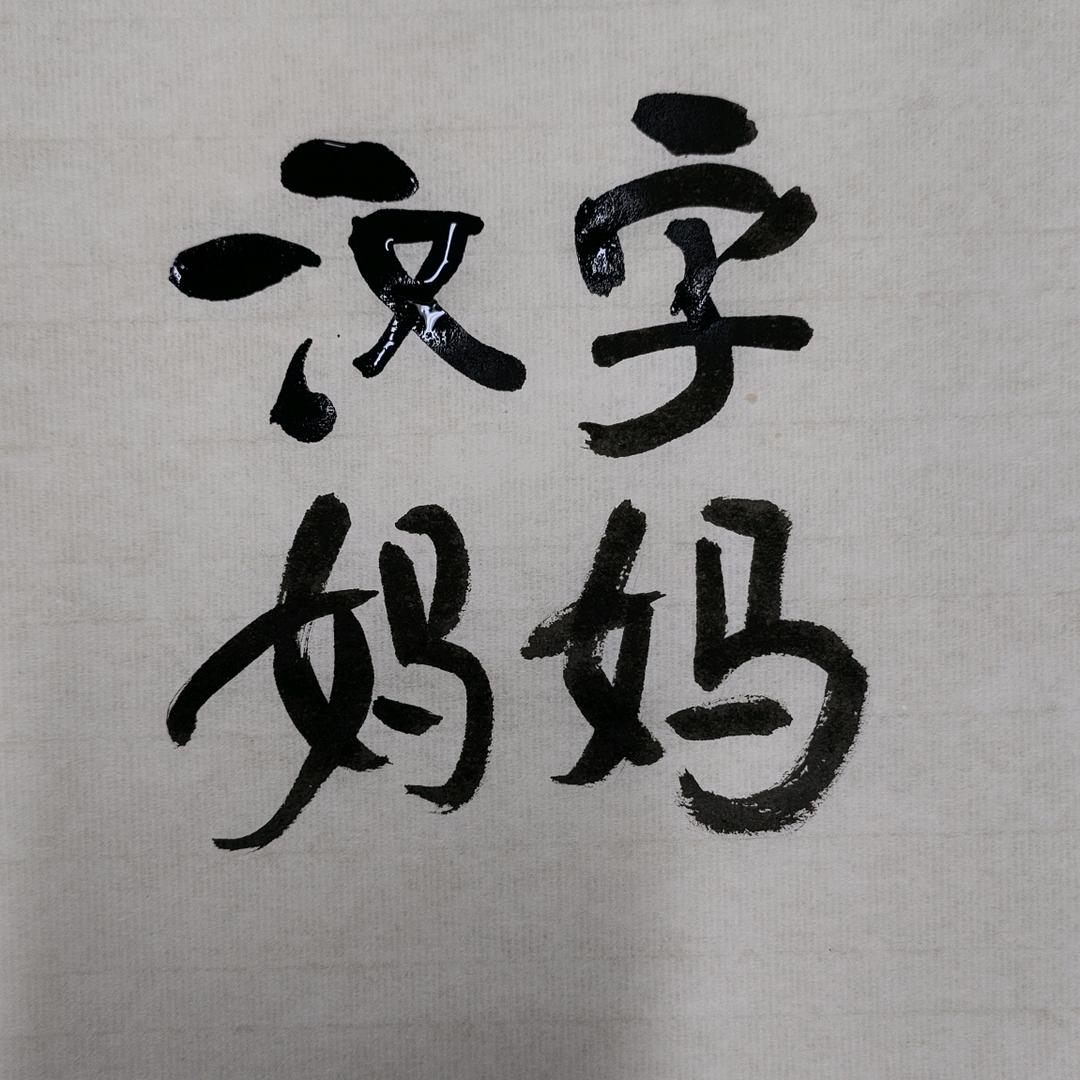 汉字
妈妈